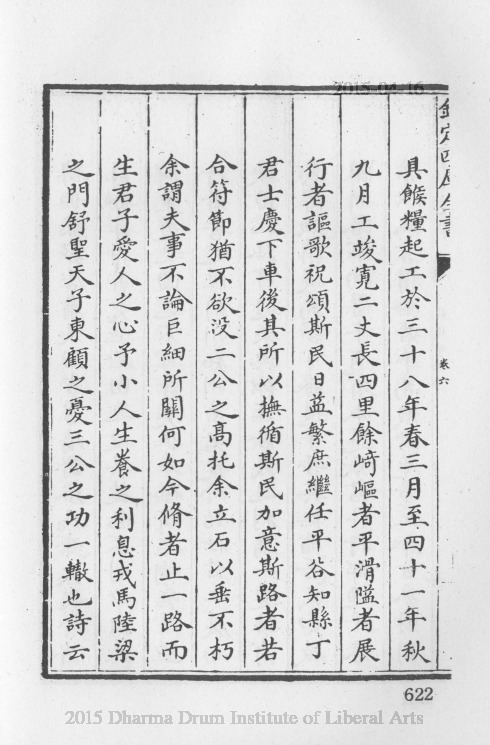 2015-04-16
欽定四庫全書
卷六
具餱糧起工於三十八年春三月至四十一年秋
九月工竣寛二丈長四里餘﨑嶇者平滑隘者展
行者謳歌祝頌斯民日益繁庶繼任平谷知縣丁
君士慶下車後其所以撫循斯民加意斯路者若
合符節猶不欲没二公之髙托余立石以垂不朽
余謂夫事不論巨細所闗何如今脩者止一路而
生君子愛人之心予小人生養之利息戎馬陸梁
之門舒聖天子東顧之憂三公之功一轍也詩云
622
2015 Dharma Drum Institute of Liberal Arts